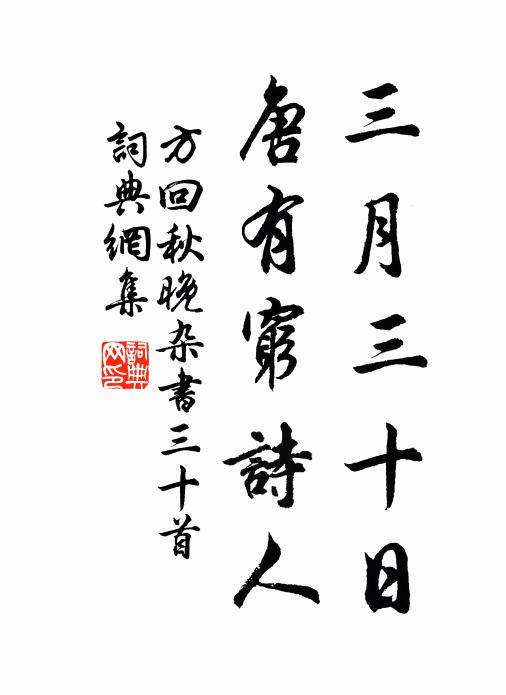 三月三十日
唐有窮詩人
方回秋晚杂書三十首
詞典網集
詞典
网印